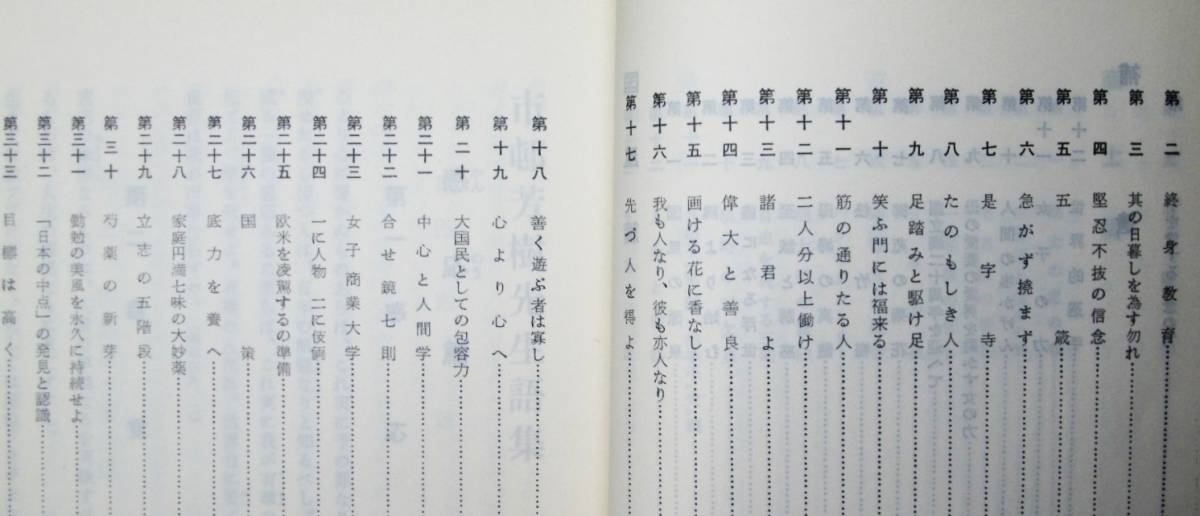 第二 終身教育
第三 其の日暮しを為す勿れ
第四 堅忍不抜の信念
第五 五箴
第六 急がず撓まず
第七 是字寺
第八 たのもしき人
第九 足踏みと駆け足
第十 笑ふ門には福来る
第十一 筋の通りたる人
第十二 二人分以上働け
第十三 諸君よ
第十四 偉大と善良
第十五 画ける花に香なし
第十六 我も人なり、彼も亦人なり
第十七 先づ人を得よ
第十八 善く遊ぶ者は寡し
第十九 心より心へ
第二十 大国民としての包容力
第二十一 中心と人間学
第二十二 合せ鏡七則
第二十三 女子商業大学
第二十四 一に人物 二に伎倆
第二十五 欧米を凌駕するの準備
第二十六 国策
第二十七 底力を養へ
第二十八 家庭円満七味の大妙薬
第二十九 立志の五階段
第三十 芍薬の新芽
第三十一 勤勉の美風を永久に持続せよ
第三十二 「日本の中点」の発見と認識
第三十三 目標は高く